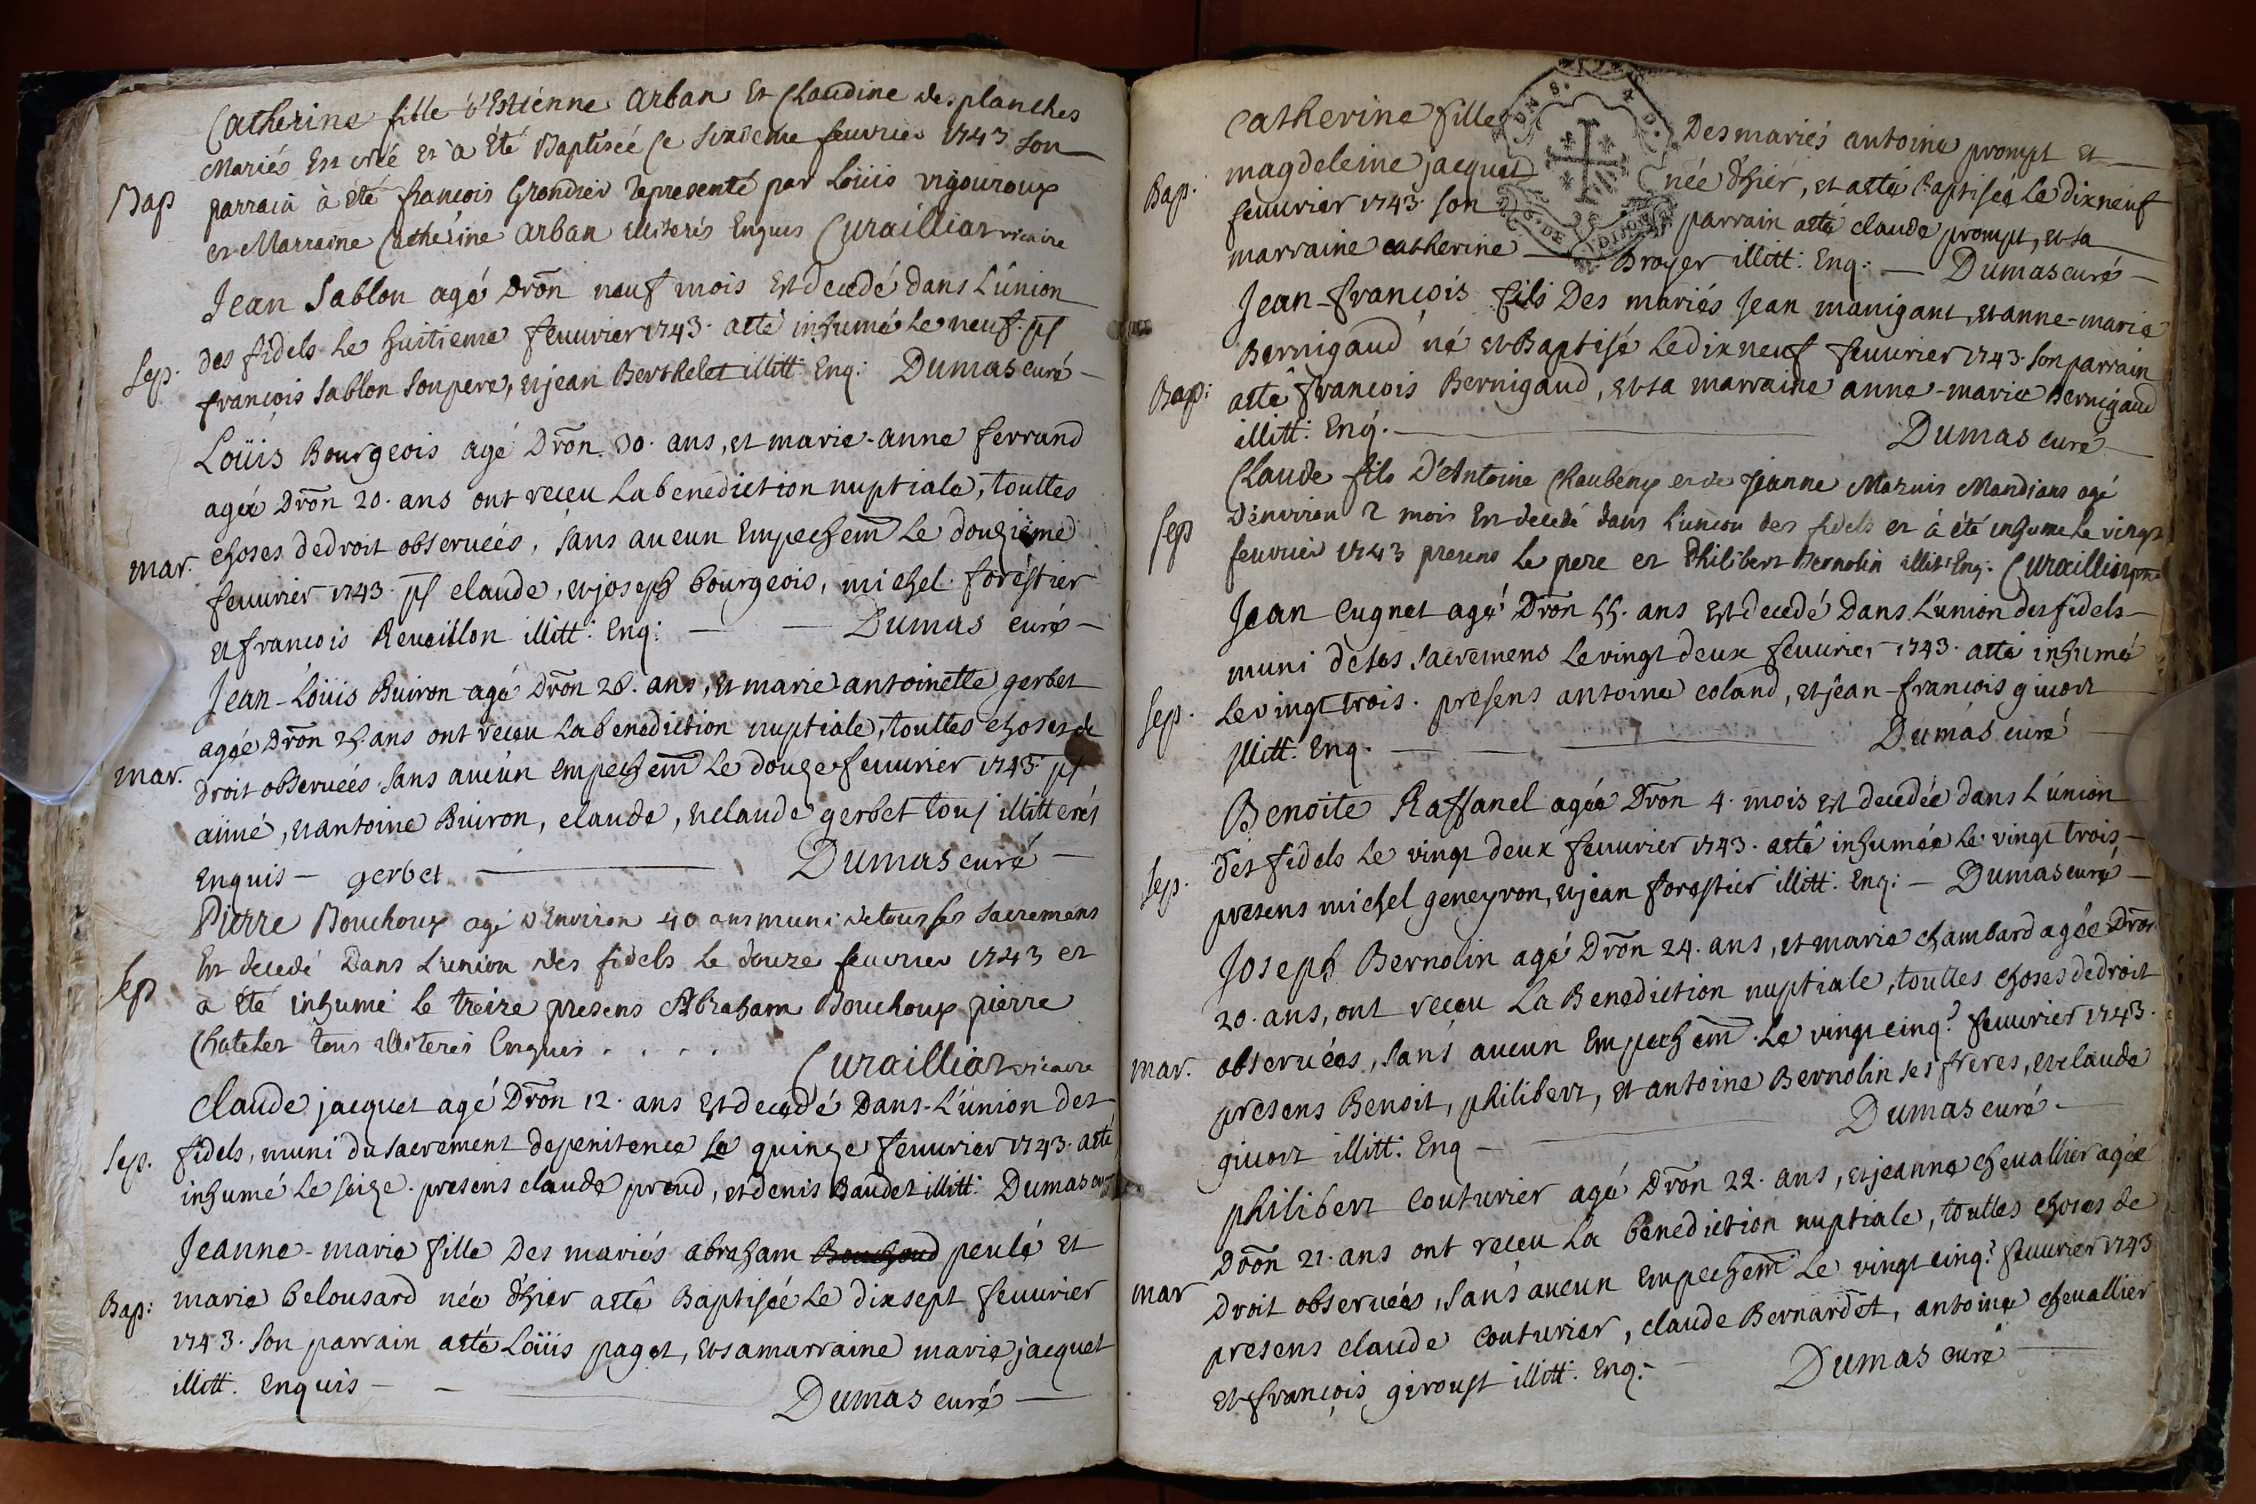 Catherine fille d'Estienne Arban Et Claudine desplanches
Mariés Est née et à été Baptisée le sixieme feuvrier 1743 son
Bap parrain à été françois Grondier representé par Loüis vigouroux
et Marraine Catherine Arban illiterés Enquis Curailliat vicaire
Jean Sablon agé Dron neuf mois Est decedé dans L'union
Sep. des fidels le huitieme feuvrier 1743. a été inhumé le neuf. ps
françois Sablon son pere, et jean Berthelet illitt: Enq: Dumas curé
Loüis Bourgeois agé Dron 30. ans, et marie-anne ferrand
agée Dron 20. ans ont receu La benediction nuptiale, touttes
mar. choses de droit observées, sans aucun Empechem Le douzieme
feuvrier 1743. ps claude, et joseph bourgeois, michel forestier
et françois Reveillon illitt: Enq: Dumas curé
Jean-Loüis Buiron agé Dron 28. ans, et marie antoinette gerbet
agée Dron 25 ans ont receu La benediction nuptiale, touttes choses de
mar. droit observées sans aucun empechem Le douze feuvrier 1743. ps
aimé, et antoine Buiron, claude, et claude gerbet tous illitterés
Enquis gerbet Dumas curé
Pierre Bouchoux agé d'Environ 40 ans muni de tous ses sacremens
Sep Est decedé Dans L'union des fidels le douze feuvrier 1743 et
a été inhumé le treize presens Abraham Bouchoux pierre
Chatelet tous illiterés Enquis . . . . Curailliat vicaire
Claude jacquet agé Dron 12. ans Est decedé Dans L'union des
Sep. fidels, muni du sacrement de penitence Le quinze feuvrier 1743. a été
inhumé le seize. presens claude proud, et denis Baudet illitt: Dumas curé
Jeanne-marie fille Des mariés abraham Bouchoud peulé Et
Bap: marie belousard née d'hier a été Baptisée Le dixsept feuvrier
1743. son parrain a été Loüis paget, et sa marraine marie jacquet
illitt. Enquis Dumas curé
Catherine fille Des mariés antoine prompt et
Bap. magdeleine jacquet née d'hier, et a été Baptisée Le dixneuf
feuvrier 1743. son parrain a été claude prompt, et sa
marraine catherine Broyer illitt: Enq: Dumas curé
Jean-françois fils Des mariés Jean manigant, et anne-marie
Bernigaud né et Baptisé Le dixneuf feuvrier 1743. son parrain
Bap: a été françois Bernigaud, et sa marraine anne-marie Bernigaud
illitt: Enq. Dumas curé
Claude fils D'Antoine Chaubeny et de Jeanne Mazuis Mandians agé
Sep D'environ 2 mois Est decedé dans L'union des fidels et à été inhumé le vingt
feuvrier 1743 presens le pere et Philibert Bernolin illit: Enq. Curailliat
Jean Cugnet agé Dron 55. ans Est decedé Dans L'union des fidels
muni de ses sacremens Le vingt deux feuvrier 1743. a été inhumé
Sep. Le vingt trois. presens antoine coland, et jean-françois givort
jllitt. Enq. Dumas curé
Benoite Raffanel agée Dron 4. mois Est decedée dans L'union
des fidels Le vingt deux feuvrier 1743. a été inhumée Le vingt trois
Sep. presens michel geneyron, et jean forestier illitt: Enq: Dumas curé
Joseph Bernolin agé Dron 24. ans, et marie chambard agée Dron
20. ans, ont receu La Benediction nuptiale, touttes choses de droit
mar. observées, sans aucun Empechem Le vingt cinq? feuvrier 1743.
presens Benoit, philibert, et antoine Bernolin ses freres, et claude
givort illitt: Enq Dumas curé
philibert couturier agé Dron 22. ans, et jeanne chevallier agée
Dron 21. ans ont receu La benediction nuptiale, touttes choses de
mar Droit observées, sans aucun Empechem Le vingt cinq? feuvrier 1743
presens claude couturier, claude Bernardet, antoine chevallier
et françois giroust illitt: Enq: Dumas curé